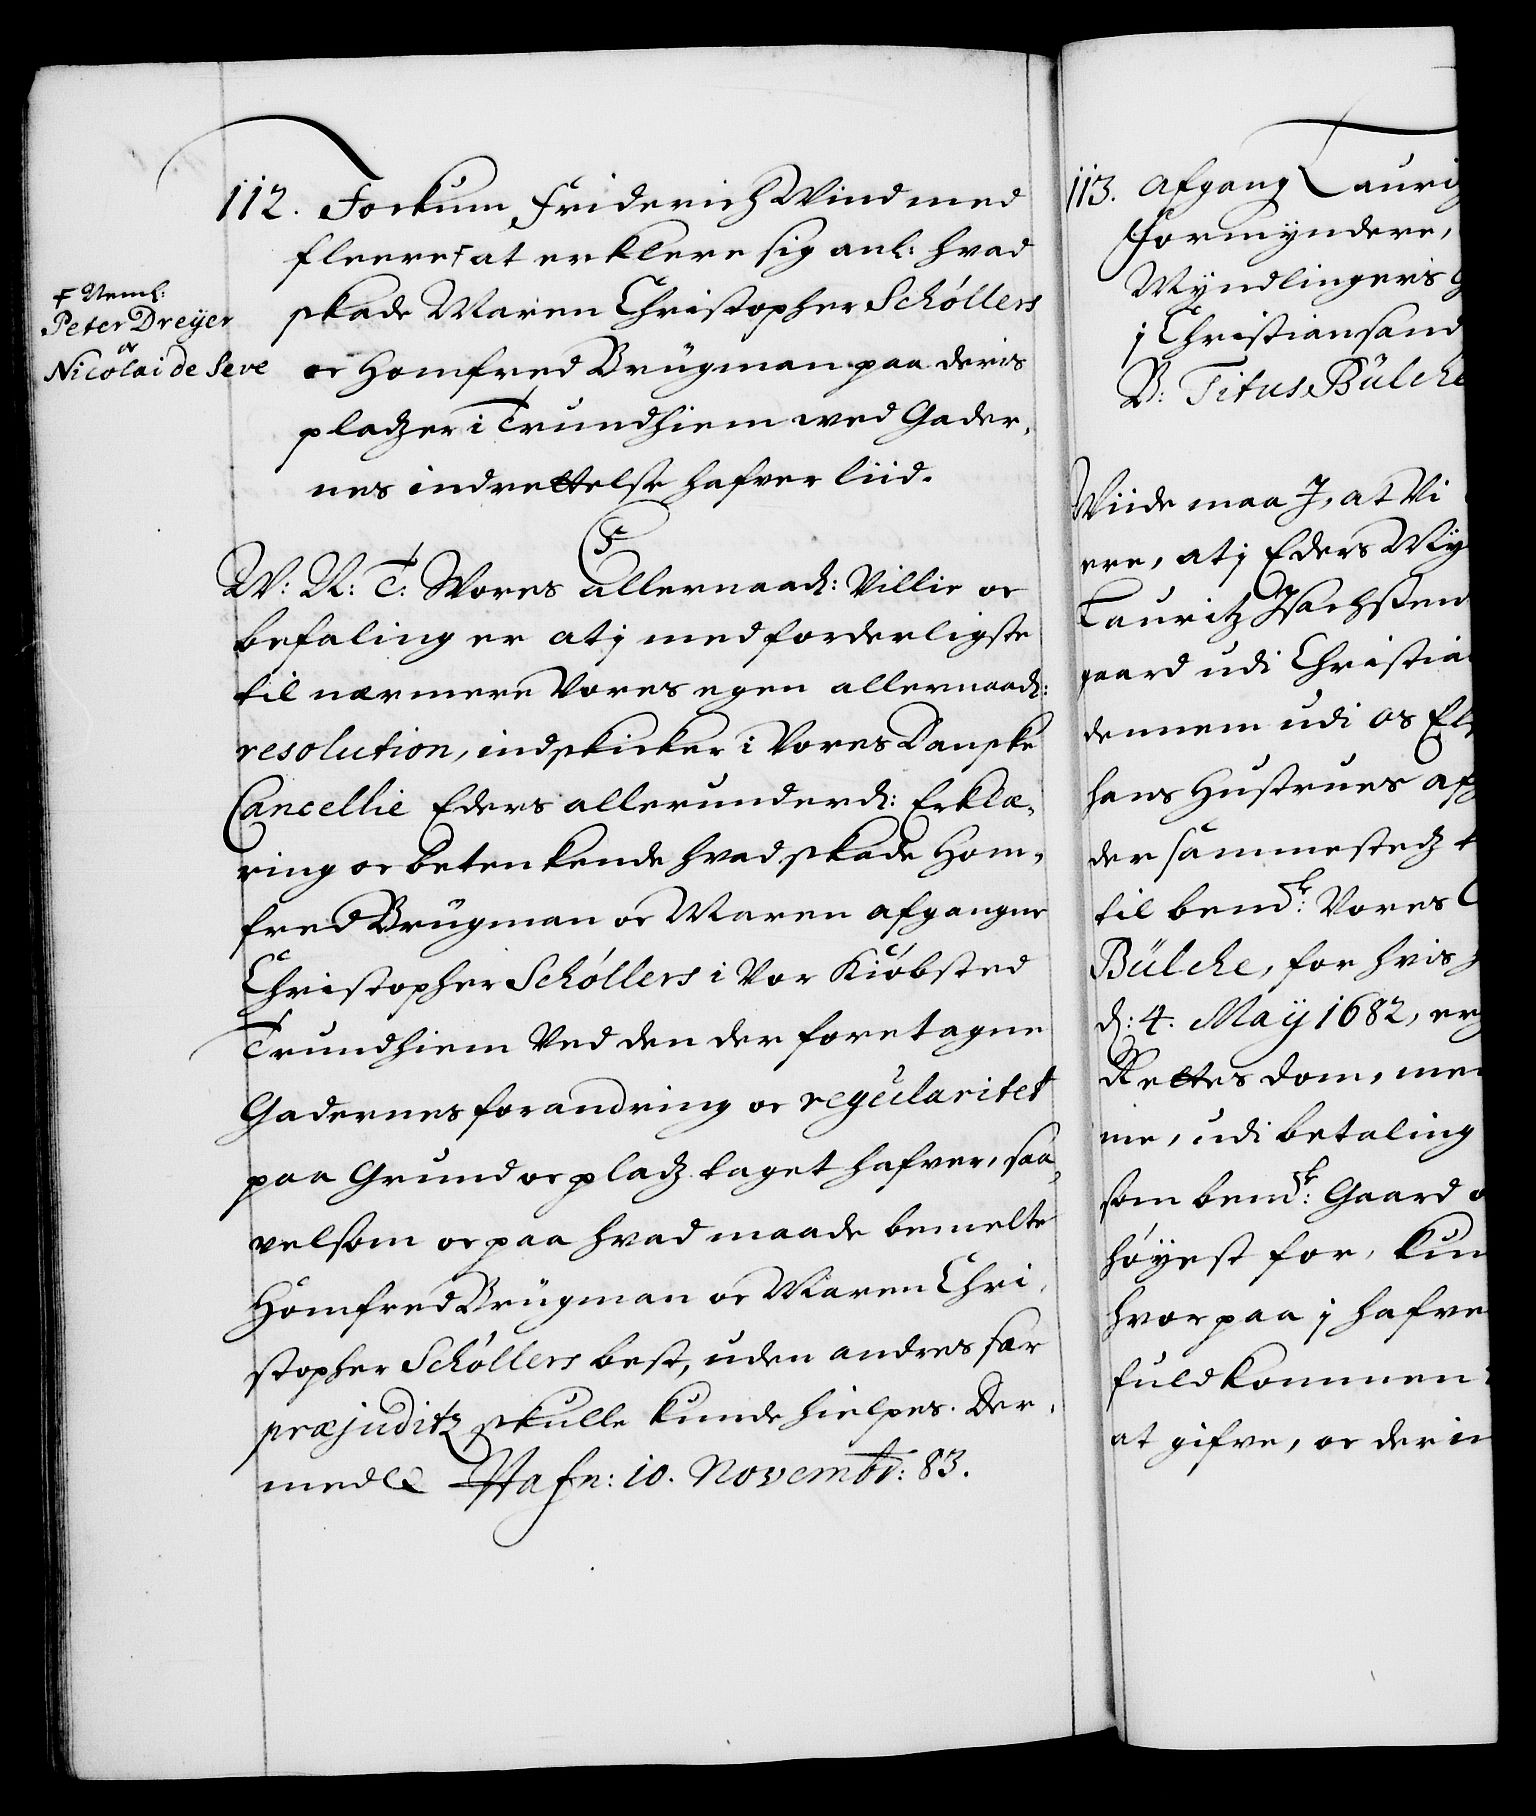 112. Jockum Friderich Wind med
fleere † at erklere sig anl: hvad
† Neml:
Peter Dreÿer
oc
Nicolai de Seve
skade Maren Christopher Schøllers
oc Homfred Brügman paa deris
pladzer i Trundhiem wed Gader,
nes indrettelse hafver liid.
W: N: T: Vores allernaad: Villie oc
befaling er at j med forderligste
til nærmere Vores egen allernaad:
resolution, indskicker i Vores Danske
Cancellie Eders allerunderd: Erklæ,
ring oc betenkende hvad skade Hom,
fred Brügman oc Maren afgangne
Christopher Schøllers i Vor Kiøbsted
Trundhiem Ved den der foretagne
Gadernes forandring oc regularitet
paa Grund oc pladz taget hafver, saa,
velsom oc paa hvad maade bemelte
Homfred Brügman oc Maren Chri,
stopher Schøllers best, uden andres sær
præjuditz skulle kunde hielpes. Der,
med &c Hafn: 10. Novembr: 83.
113. Afgang Lauriz
Formyndere,
Myndlingeris G
j Christiansand
B: Titus Bülche
Wiide maa J, at Vi
ere, at j Eders My
Lauritz Isachsøn
gaard udi Christia
dennem udi os El
hans Hustrues af
der sammestedz
til bemt: Vores
Bülche, for hvis
d: 4. Maÿ 1682, er
Rettes dom, me
nie, udi betaling
som bemt: Gaard o
høyest for, kun
hvorpaa j hafve
fuldkommen
at gifve, oc der in